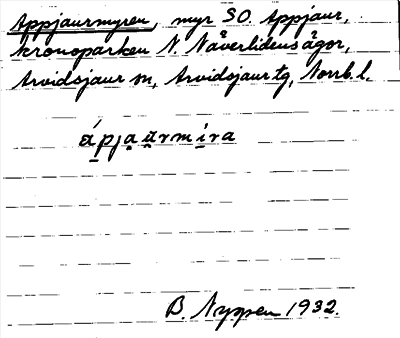 Appjaurmyren, myr SO. Appjaur,
kronoparken N. Näverlidens ågor,
Arvidsjaur sn, Arvidsjaur tg, Norrb. l.
ápjaạrmira
B. Nyppen 1932.